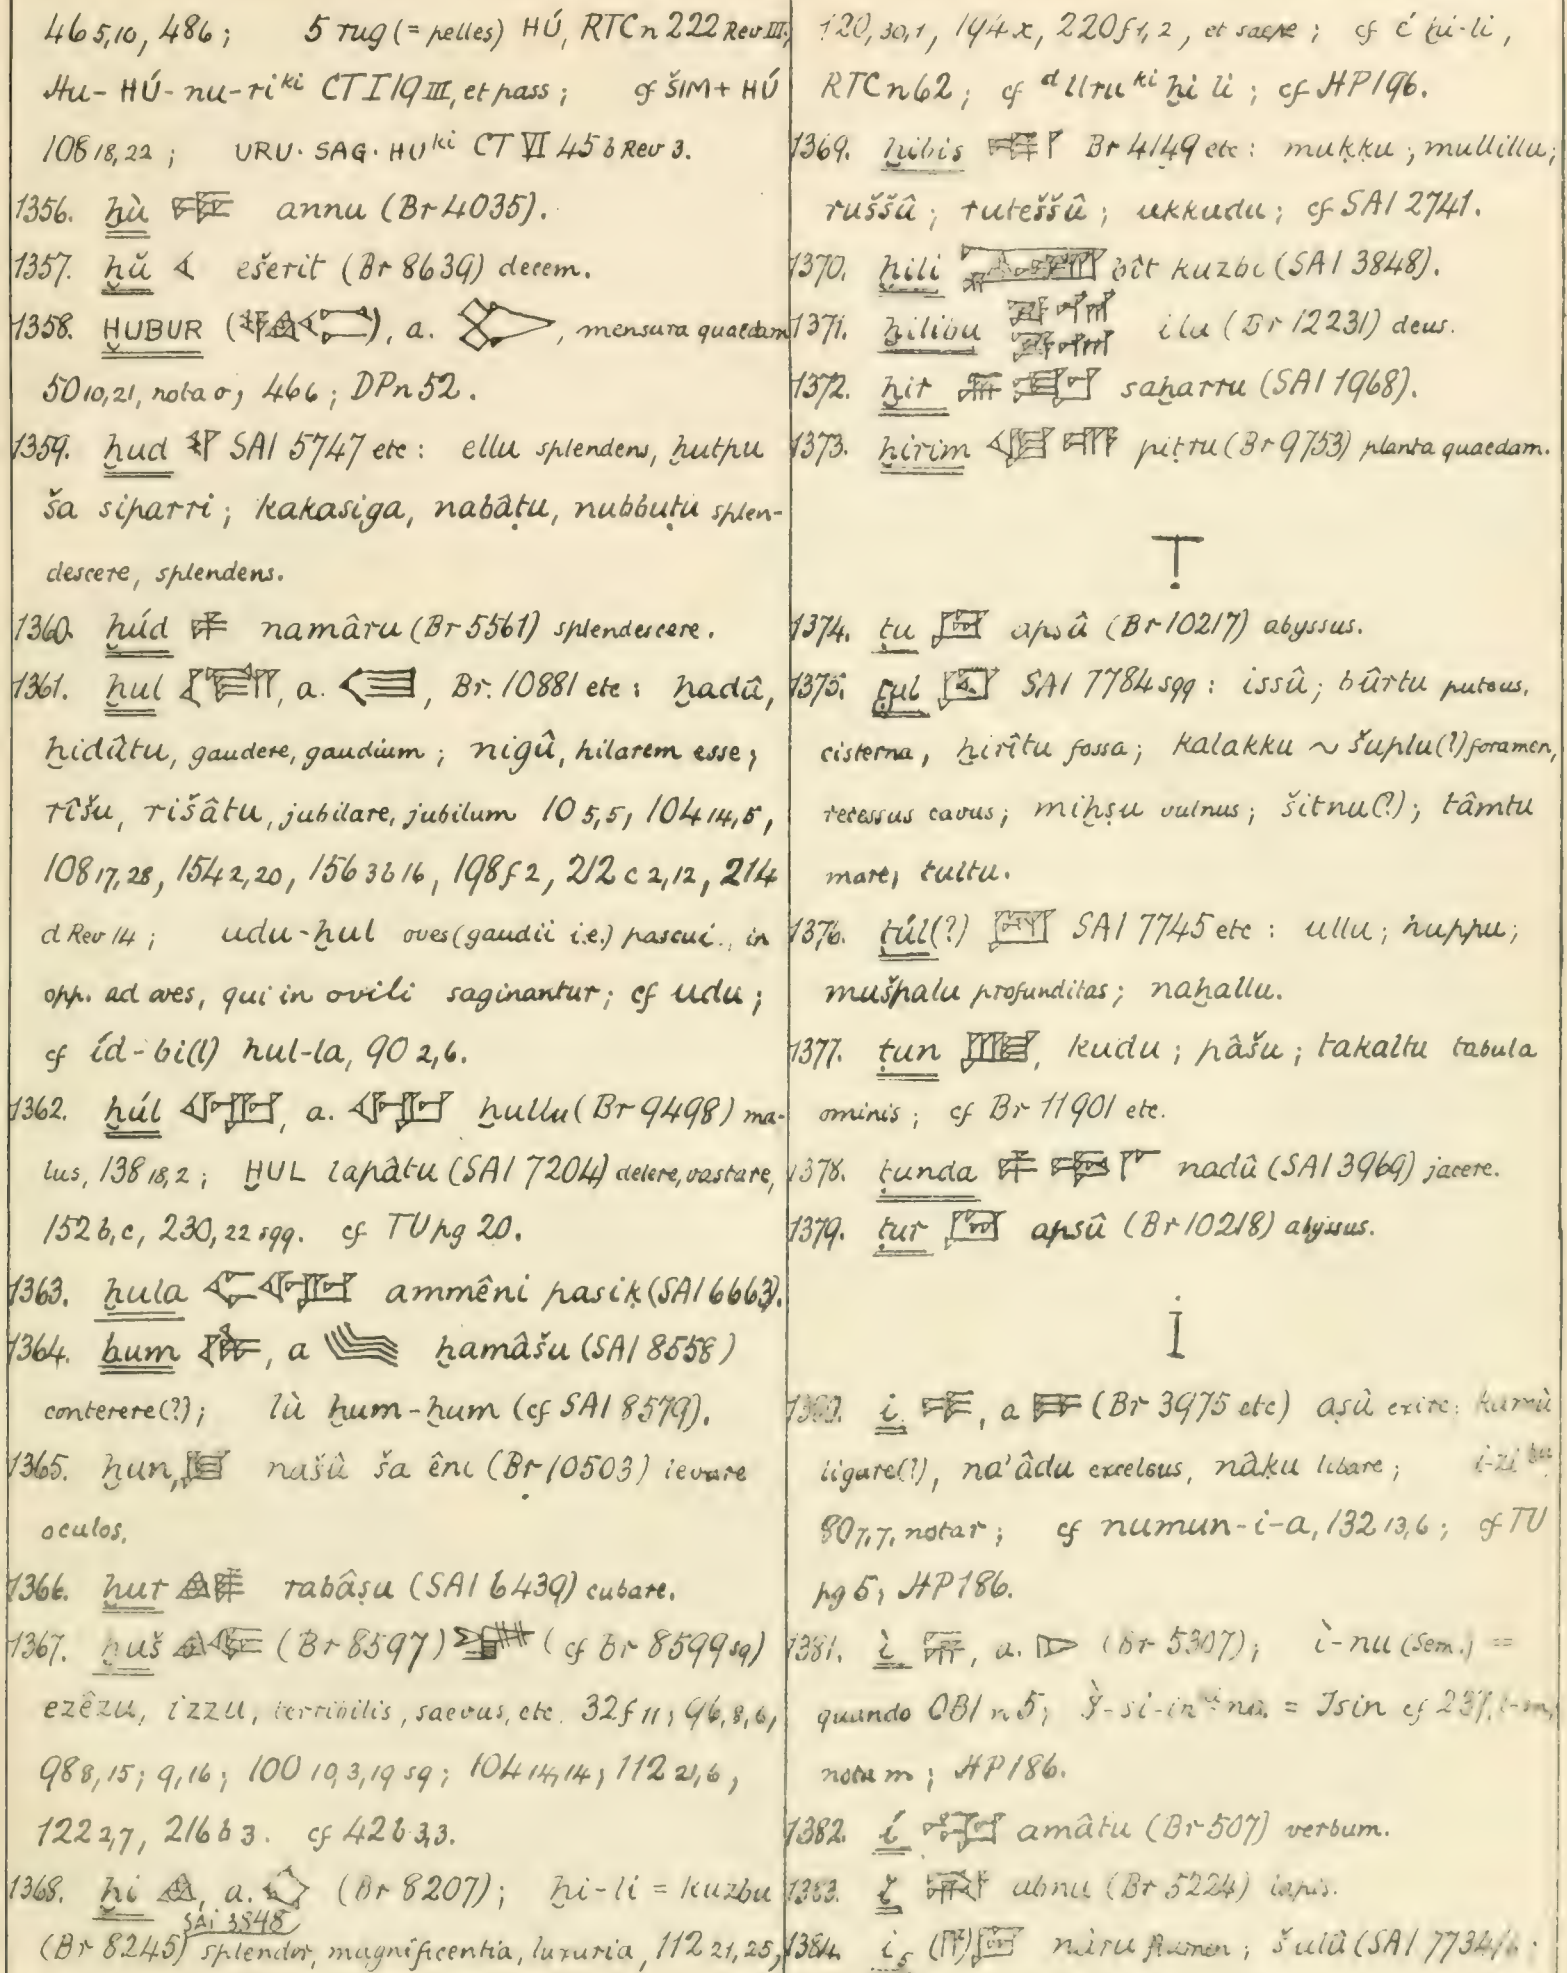 46 5,10, 486; 5 rug (= pelles) HÚ, RTC n 222 Rev III,
Hu-HÚ-nu-ri ki CT I 19 III, et pass; cf ŠIM+HÚ
108 18,22; URU·SAG·HU ki CT VI 45 b Rev 3.
1356. ḫù annu (Br 4035).
1357. ḫŭ ešerit (Br 8639) decem.
1358. ḪUBUR ( ), a. , mensura quaedam
50 10,21, nota o; 466; DP n 52.
1359. ḫud SAI 5747 etc: ellu splendens, ḫutpu
ša siparri; kakasiga, nabâṭu, nubbuṭu splen-
descere, splendens.
1360. ḫúd namâru (Br 5561) splendescere.
1361. ḫul , a. , Br. 10881 etc: ḫadû,
ḫidûtu, gaudere, gaudium; nigû, hilarem esse;
rîšu, rišâtu, jubilare, jubilum 10 5,5, 104 14,5,
108 17,28, 154 2,20, 156 3b16, 198 f 2, 212 c 2,12, 214
d Rev 14; udu-ḫul oves (gaudii i.e.) pascui, in
opp. ad oves, qui in ovili saginantur; cf udu;
cf íd-bi(l) hul-la, 90 2,6.
1362. ḫúl , a. ḫullu (Br 9498) ma-
lus, 138 18,2; ḪUL lapâtu (SAI 7204) delere, vastare,
152 b,c, 230, 22 sqq. cf TU pg 20.
1363. ḫula ammêni pasiḳ (SAI 6663).
1364. ḫum , a ḫamâšu (SAI 8558)
conterere (?); lù ḫum-ḫum (cf SAI 8579).
1365. ḫun, našû ša êni (Br 10503) levare
oculos.
1366. ḫur rabâṣu (SAI 6439) cubare.
1367. ḫuš (Br 8597) (cf Br 8599 sq)
ezêzu, izzu, terribilis, saevus, etc. 32 f 11; 96, 8,6,
98 8,15; 9,16; 100 10,3,19 sq; 104 14,14; 112 21,6,
122 2,7, 216 b 3. cf 42 b 3,3.
1368. ḫi , a. (Br 8207); ḫi-li = kuzbu
SAI 3848
(Br 8245) splendor, magnificentia, luxuria, 112 21,25,
120, 30,1, 194 x, 220 f 1,2, et saepe; cf é ḫi-li,
RTC n 62; cf d Uru ki ḫi li; cf HP 196.
1369. ḫibis Br 4149 etc: mukku; mullillu;
ruššû; ruteššû; ukkudu; cf SAI 2741.
1370. ḫili bît kuzbi (SAI 3848).
1371. ḫilibu ilu (Br 12231) deus.
1372. ḫir saḫarru (SAI 1968).
1373. ḫirim piṭru (Br 9753) planta quaedam.
Ṭ
1374. ṭu apsû (Br 10217) abyssus.
1375. ṭul SAI 7784 sqq: issû; bûrtu puteus,
cisterna, ḫirîtu fossa; kalakku ~ šuplu (?) foramen,
recessus cavus; miḫṣu vulnus; šitnu (?); tâmtu
mare, tultu.
1376. ṭúl (?) SAI 7745 etc: ullu; ḫuppu;
mušpalu profunditas; naḫallu.
1377. ṭun , kudu; pâšu; takaltu tabula
ominis; cf Br 11901 etc.
1378. ṭunda nadû (SAI 3969) jacere.
1379. ṭur apsû (Br 10218) abyssus.
I
1380. i , a (Br 3975 etc) aṣû exire; kamû
ligare (?), na'âdu excelsus, nâḳu libare; i-zi
80 7,7, nota r; cf numun-i-a, 132 13,6; cf TU
pg 5; HP 186.
1381. ì , a. (Br 5307); ì-nu (Sem.) =
quando OBI n 5; = Isin cf
nota m; HP 186.
1382. í amâtu (Br 507) verbum.
1383. ĭ abnu (Br 5224) lapis.
1384. i5 nâru flumen; šulû (SAI